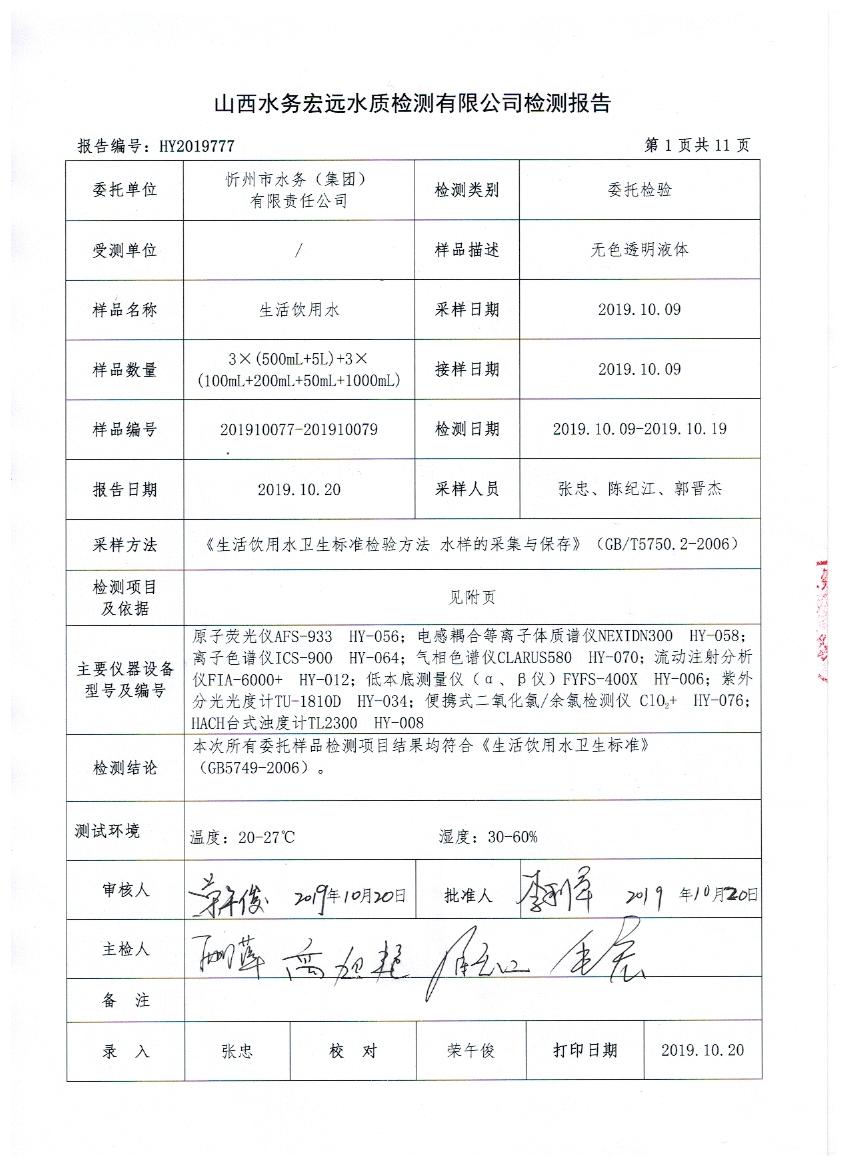 山西水务宏远水质检测有限公司检测报告
报告编号：HY2019777 第 1 页共 11 页
委托单位 忻州市水务（集团）有限责任公司 检测类别 委托检验
受测单位 / 样品描述 无色透明液体
样品名称 生活饮用水 采样日期 2019.10.09
样品数量 3×(500mL+5L)+3×(100mL+200mL+50mL+1000mL) 接样日期 2019.10.09
样品编号 201910077-201910079 检测日期 2019.10.09-2019.10.19
报告日期 2019.10.20 采样人员 张忠、陈纪江、郭晋杰
采样方法 《生活饮用水卫生标准检验方法 水样的采集与保存》（GB/T5750.2-2006）
检测项目及依据 见附页
主要仪器设备型号及编号
原子荧光仪AFS-933 HY-056；电感耦合等离子体质谱仪NEXIDN300 HY-058；
离子色谱仪ICS-900 HY-064；气相色谱仪CLARUS580 HY-070；流动注射分析
仪FIA-6000+ HY-012；低本底测量仪（α、β仪）FYFS-400X HY-006；紫外
分光光度计TU-1810D HY-034；便携式二氧化氯/余氯检测仪 ClO₂+ HY-076；
HACH台式浊度计TL2300 HY-008
检测结论
本次所有委托样品检测项目结果均符合《生活饮用水卫生标准》
（GB5749-2006）。
测试环境 温度：20-27℃ 湿度：30-60%
审核人 荣午俊 2019年10月20日 批准人 2019 年10月20日
主检人
备 注
录 入 张忠 校 对 荣午俊 打印日期 2019.10.20